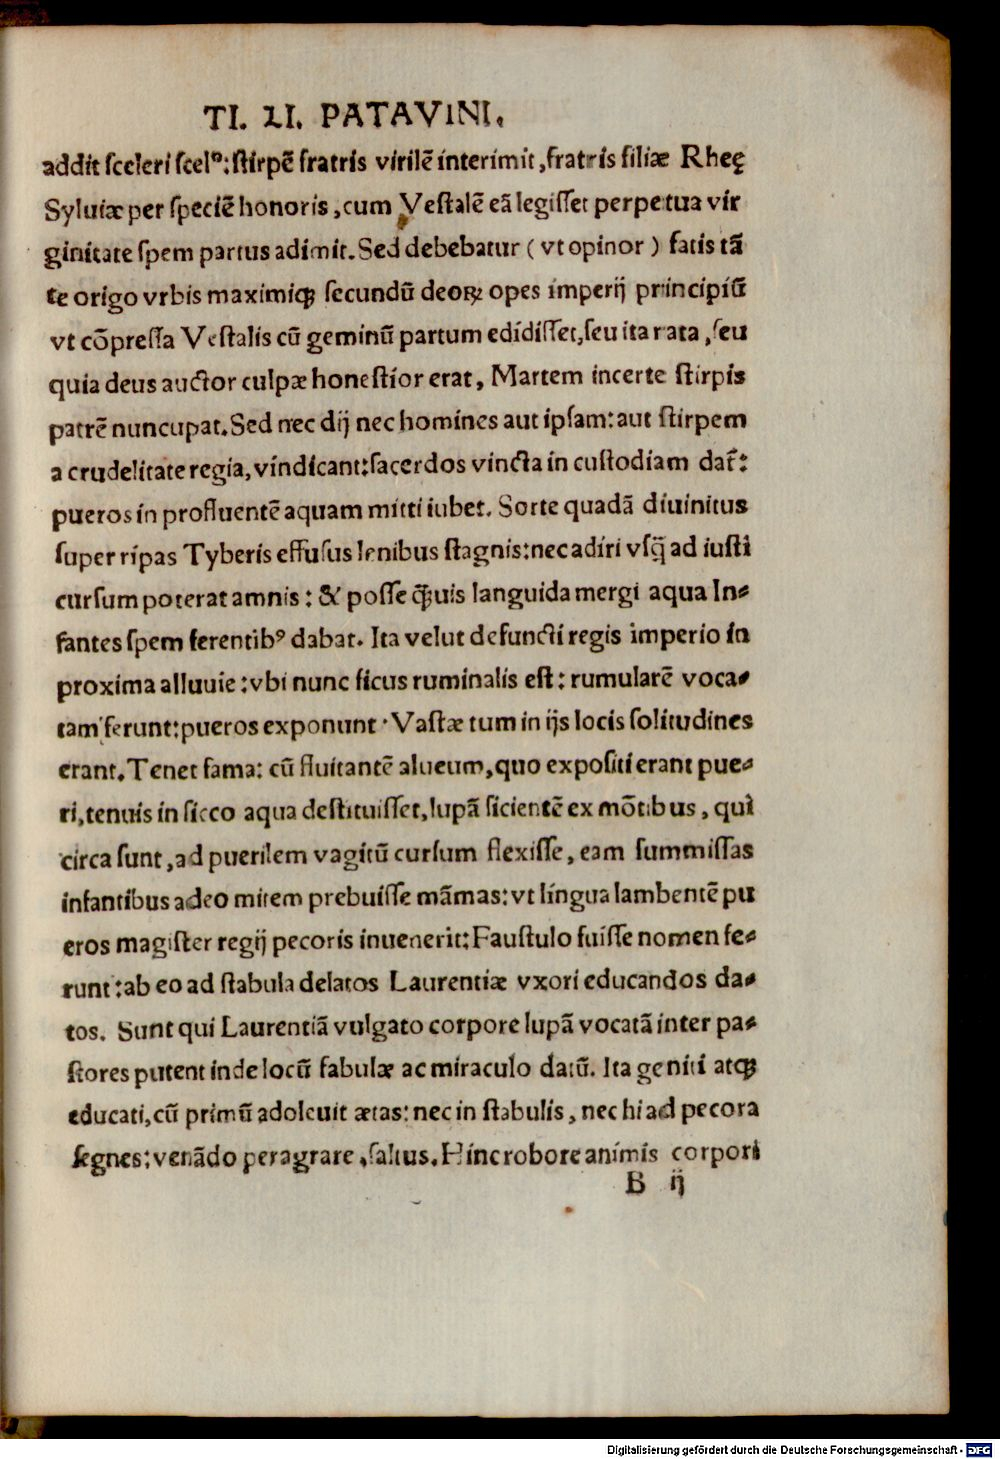 TI. LI. PATAVINI.
addit sceleri scelꝰ: stirpē fratris virilē interimit, fratris filiæ Rheę
Syluiæ per speciē honoris, cum Vestalē eā legisset perpetua vir
ginitate spem partus adimit. Sed debebatur (vt opinor) fatis tā
te origo vrbis maximiqꝫ secundū deoꝝ opes imperij principiū
vt cōpressa Vestalis cū geminū partum edidisset, seu ita rata, seu
quia deus auctor culpæ honestior erat, Martem incerte stirpis
patrē nuncupat. Sed nec dij nec homines aut ipsam: aut stirpem
a crudelitate regia, vindicant: sacerdos vincta in custodiam dat̃:
pueros in profluentē aquam mitti iubet. Sorte quadā diuinitus
super ripas Tyberis effusus lenibus stagnis: nec adiri vsq̃ ad iusti
cursum poterat amnis: & posse q̃uis languida mergi aqua In-
fantes spem ferentibꝰ dabat. Ita velut defuncti regis imperio in
proxima alluuie: vbi nunc ficus ruminalis est: rumularē voca-
tam ferunt: pueros exponunt · Vastæ tum in ijs locis solitudines
erant. Tenet fama: cū fluitantē alueum, quo expositi erant pue-
ri, tenuis in sicco aqua destituisset, lupā sicientē ex mōtibus, qui
circa sunt, ad puerilem vagitū cursum flexisse, eam summissas
infantibus adeo mitem prebuisse māmas: vt lingua lambentē pu
eros magister regij pecoris inuenerit: Faustulo fuisse nomen fe-
runt: ab eo ad stabula delatos Laurentiæ vxori educandos da-
tos. Sunt qui Laurentiā vulgato corpore lupā vocatā inter pa-
stores putent inde locū fabulæ ac miraculo datū. Ita geniti atqꝫ
educati, cū primū adoleuit ætas: nec in stabulis, nec hi ad pecora
segnes: venādo peragrare, saltus. Hinc robore animis corpori
B ij
Digitalisierung gefördert durch die Deutsche Forschungsgemeinschaft - DFG